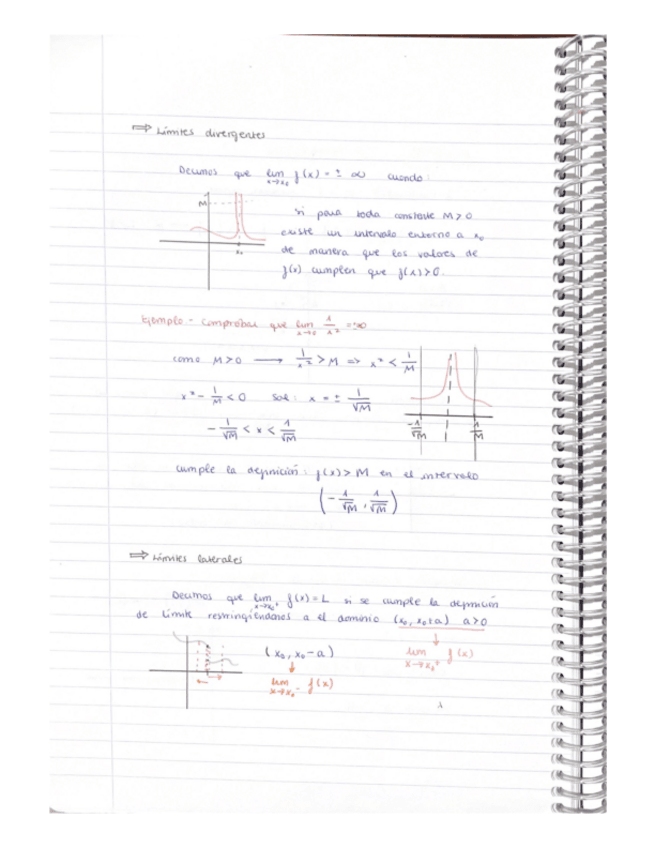 ⇒ Límites divergentes
Decimos que lim x→x₀ f(x) = ± ∞ cuando:
M
x₀
si para toda constante M > 0
existe un intervalo entorno a x₀
de manera que los valores de
f(x) cumplen que f(x) > 0.
Ejemplo.- Comprobar que lim x→0 1/x² = ∞
como M > 0 → 1/x² > M ⇒ x² < 1/M
x² - 1/M < 0 sol: x = ± 1/√M
- 1/√M < x < 1/√M
-1/√M
1/M
cumple la definición: f(x) > M en el intervalo
(- 1/√M , 1/√M)
⇒ Límites laterales
Decimos que lim x→x₀⁺ f(x) = L si se cumple la definición
de límite restringiéndonos a el dominio (x₀, x₀+a) a>0
(x₀, x₀ - a)
lim x→x₀⁻ f(x)
lim x→x₀⁺ f(x)